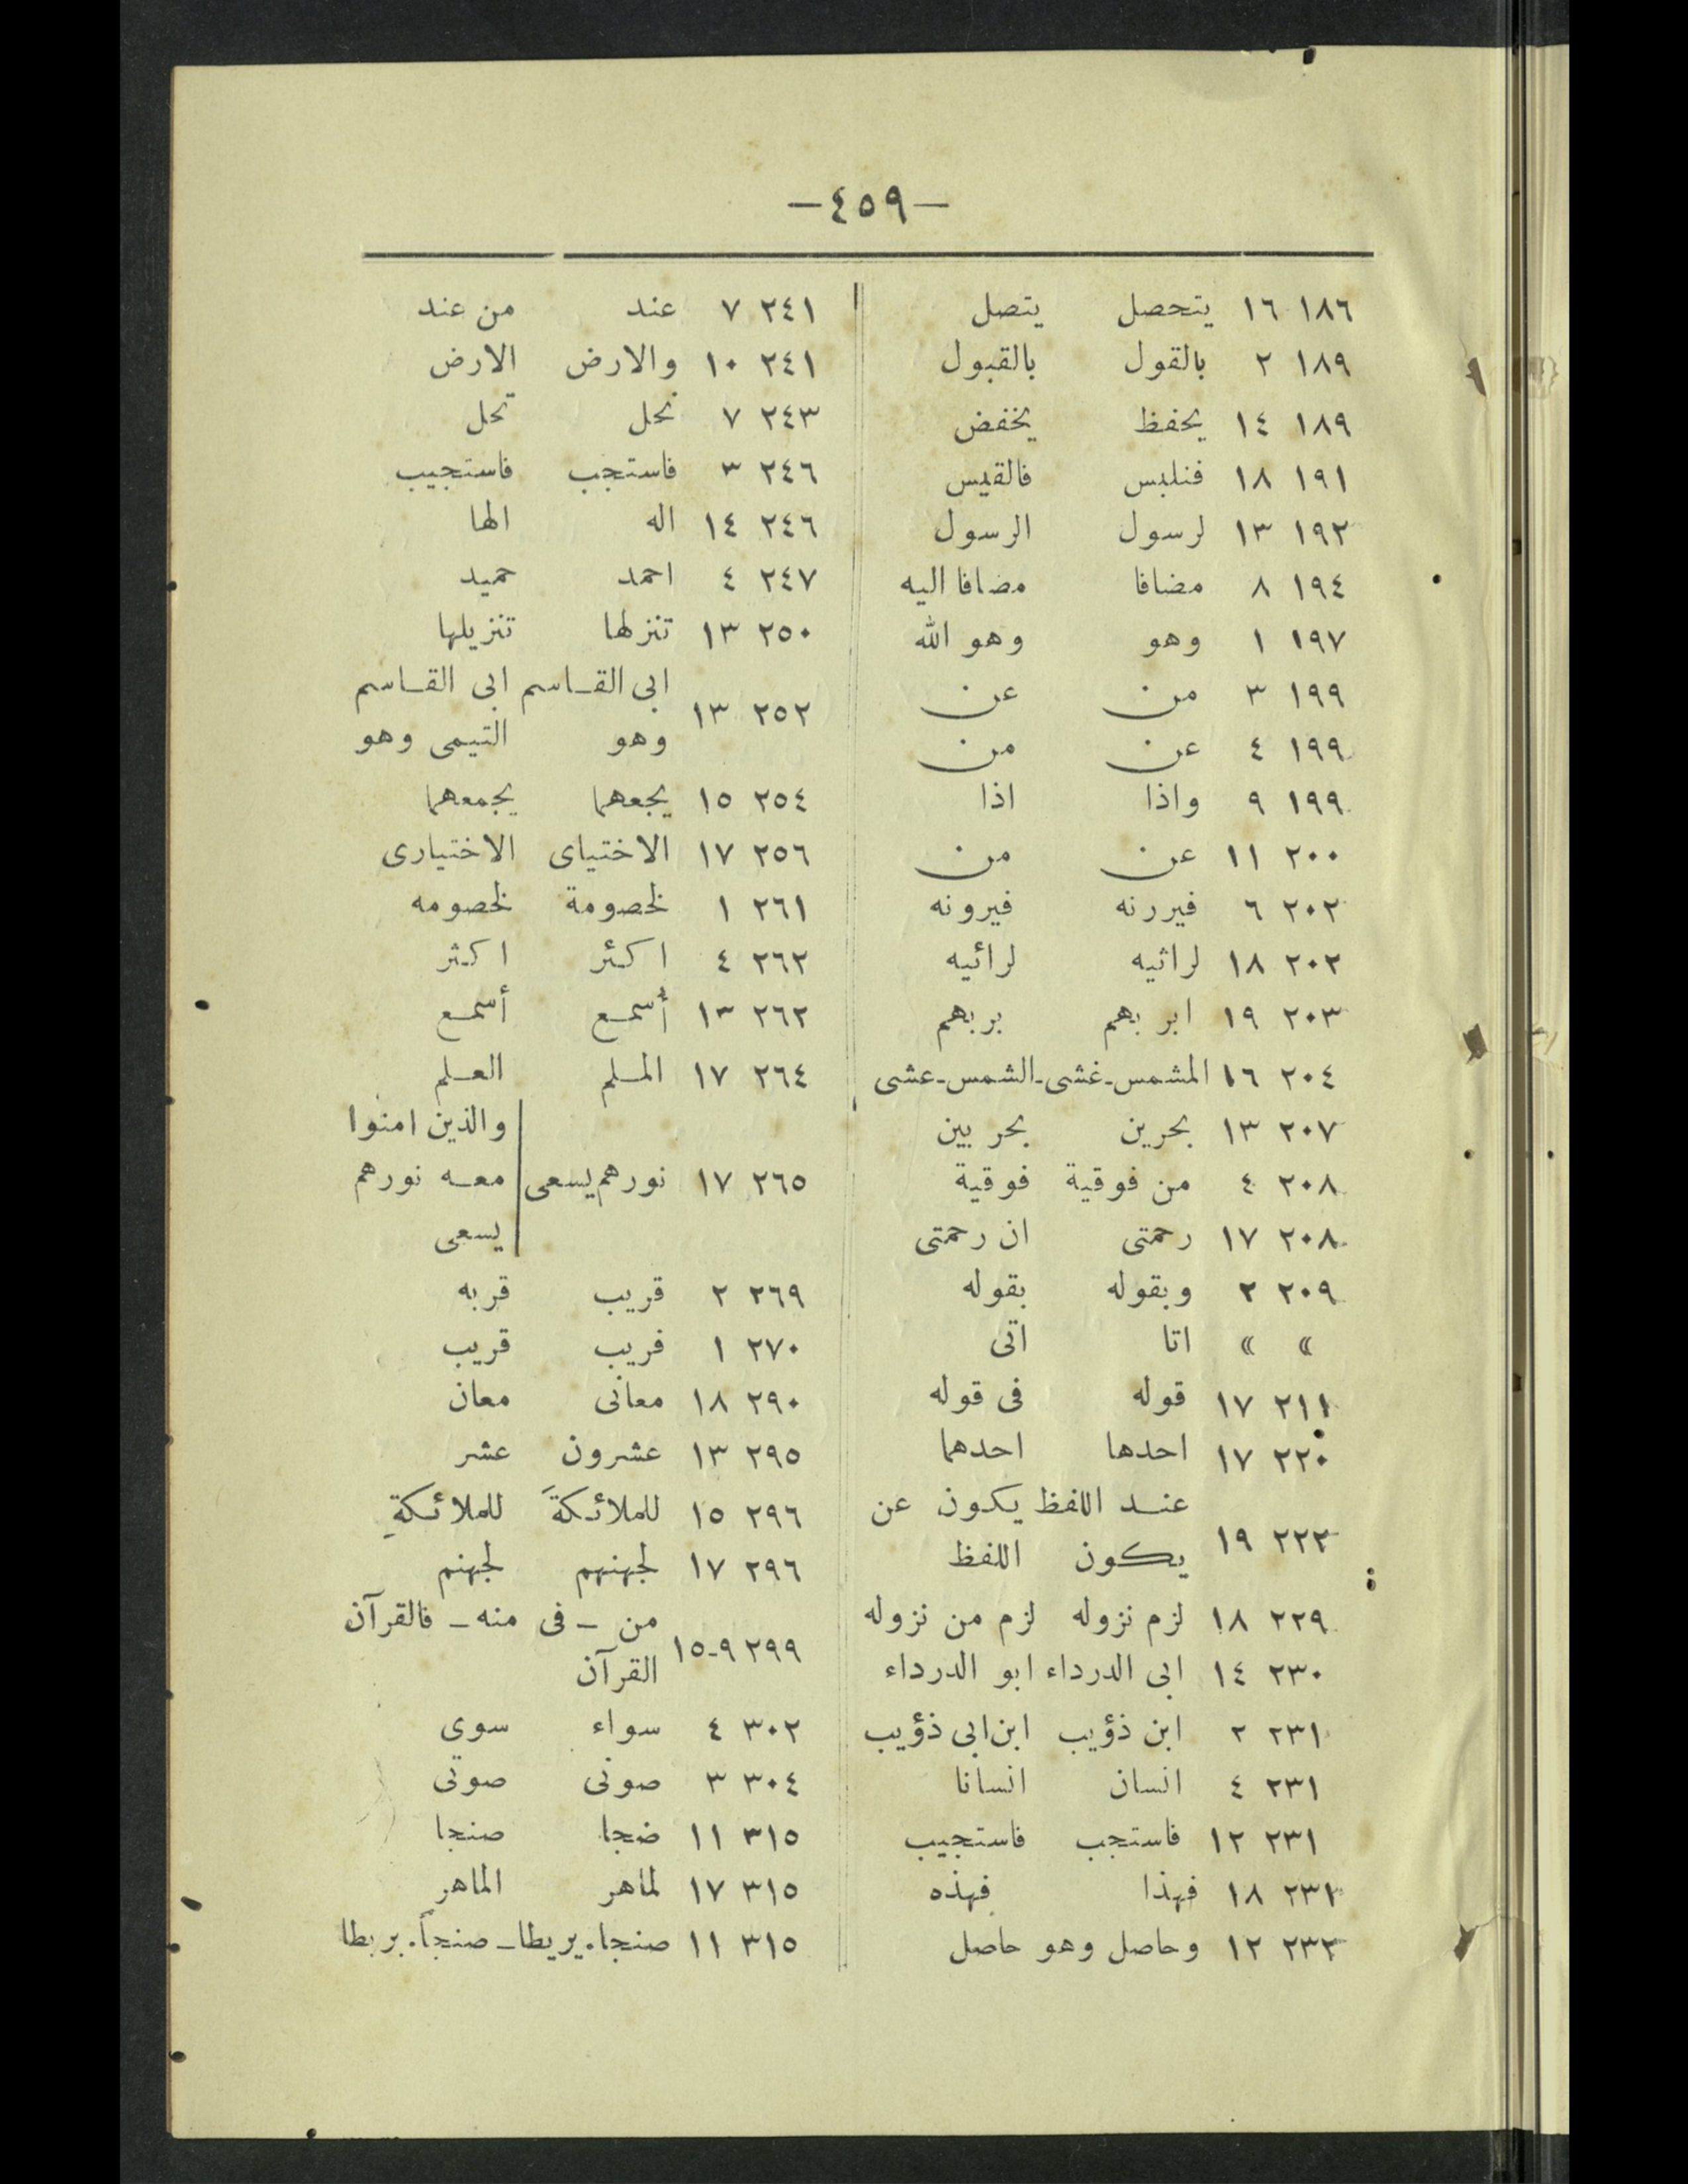 —٤٥٩—
١٨٦ ١٦ يتحصل يتصل
١٨٩ ٢ بالقول بالقبول
١٨٩ ١٤ يحفظ يخفض
١٩١ ١٨ فنلبس فالقيس
١٩٢ ١٣ لرسول الرسول
١٩٤ ٨ مضافا مضافا اليه
١٩٧ ١ وهو وهو الله
١٩٩ ٣ من عن
١٩٩ ٤ عن من
١٩٩ ٩ واذا اذا
٢٠٠ ١١ عن من
٢٠٢ ٦ فيررنه فيرونه
٢٠٢ ١٨ لراثيه لرائيه
٢٠٣ ١٩ ابر بهم بربهم
٢٠٤ ١٦ المشمس-غشى-الشمس-عشى
٢٠٧ ١٣ بحرين بحر بين
٢٠٨ ٤ من فوقية فوقية
٢٠٨ ١٧ رحمتى ان رحمتى
٢٠٩ ٢ وبقوله بقوله
» » اتا اتى
٢١١ ١٧ قوله فى قوله
٢٢٠ ١٧ احدها احدهما
٢٢٢ ١٩ عند اللفظ يكون عن
يكون اللفظ
٢٢٩ ١٨ لزم نزوله لزم من نزوله
٢٣٠ ١٤ ابى الدرداء ابو الدرداء
٢٣١ ٢ ابن ذؤيب ابن ابى ذؤيب
٢٣١ ٤ انسان انسانا
٢٣١ ١٢ فاستجب فاستجيب
٢٣١ ١٨ فهذا فهذه
٢٣٢ ١٢ وحاصل وهو حاصل
٢٤١ ٧ عند من عند
٢٤١ ١٠ والارض الارض
٢٤٣ ٧ نحل تحل
٢٤٦ ٣ فاستجب فاستجيب
٢٤٦ ١٤ اله الها
٢٤٧ ٤ احمد حميد
٢٥٠ ١٣ تنزلها تنزيلها
٢٥٢ ١٣ ابى القاسم ابى القاسم
وهو التيمى وهو
٢٥٤ ١٥ يجعهما يجمعهما
٢٥٦ ١٧ الاختياى الاختيارى
٢٦١ ١ لخصومة لخصومه
٢٦٢ ٤ اكئر اكثر
٢٦٢ ١٣ أسمع أسمع
٢٦٤ ١٧ المسلم العلم
والذين امنوا
٢٦٥ ١٧ نورهم يسعى معه نورهم
يسعى
٢٦٩ ٢ قريب قربه
٢٧٠ ١ فريب قريب
٢٩٠ ١٨ معانى معان
٢٩٥ ١٣ عشرون عشر
٢٩٦ ١٥ للملائكةَ للملائكةِ
٢٩٦ ١٧ لجهنهم لجهنم
٢٩٩ ٩-١٥ من – فى منه – فالقرآن
القرآن
٣٠٢ ٤ سواء سوى
٣٠٤ ٣ صونى صوتى
٣١٥ ١١ ضجا صنجا
٣١٥ ١٧ لماهر الماهر
٣١٥ ١١ صنجا. يريطا – صنجاً. بربطا